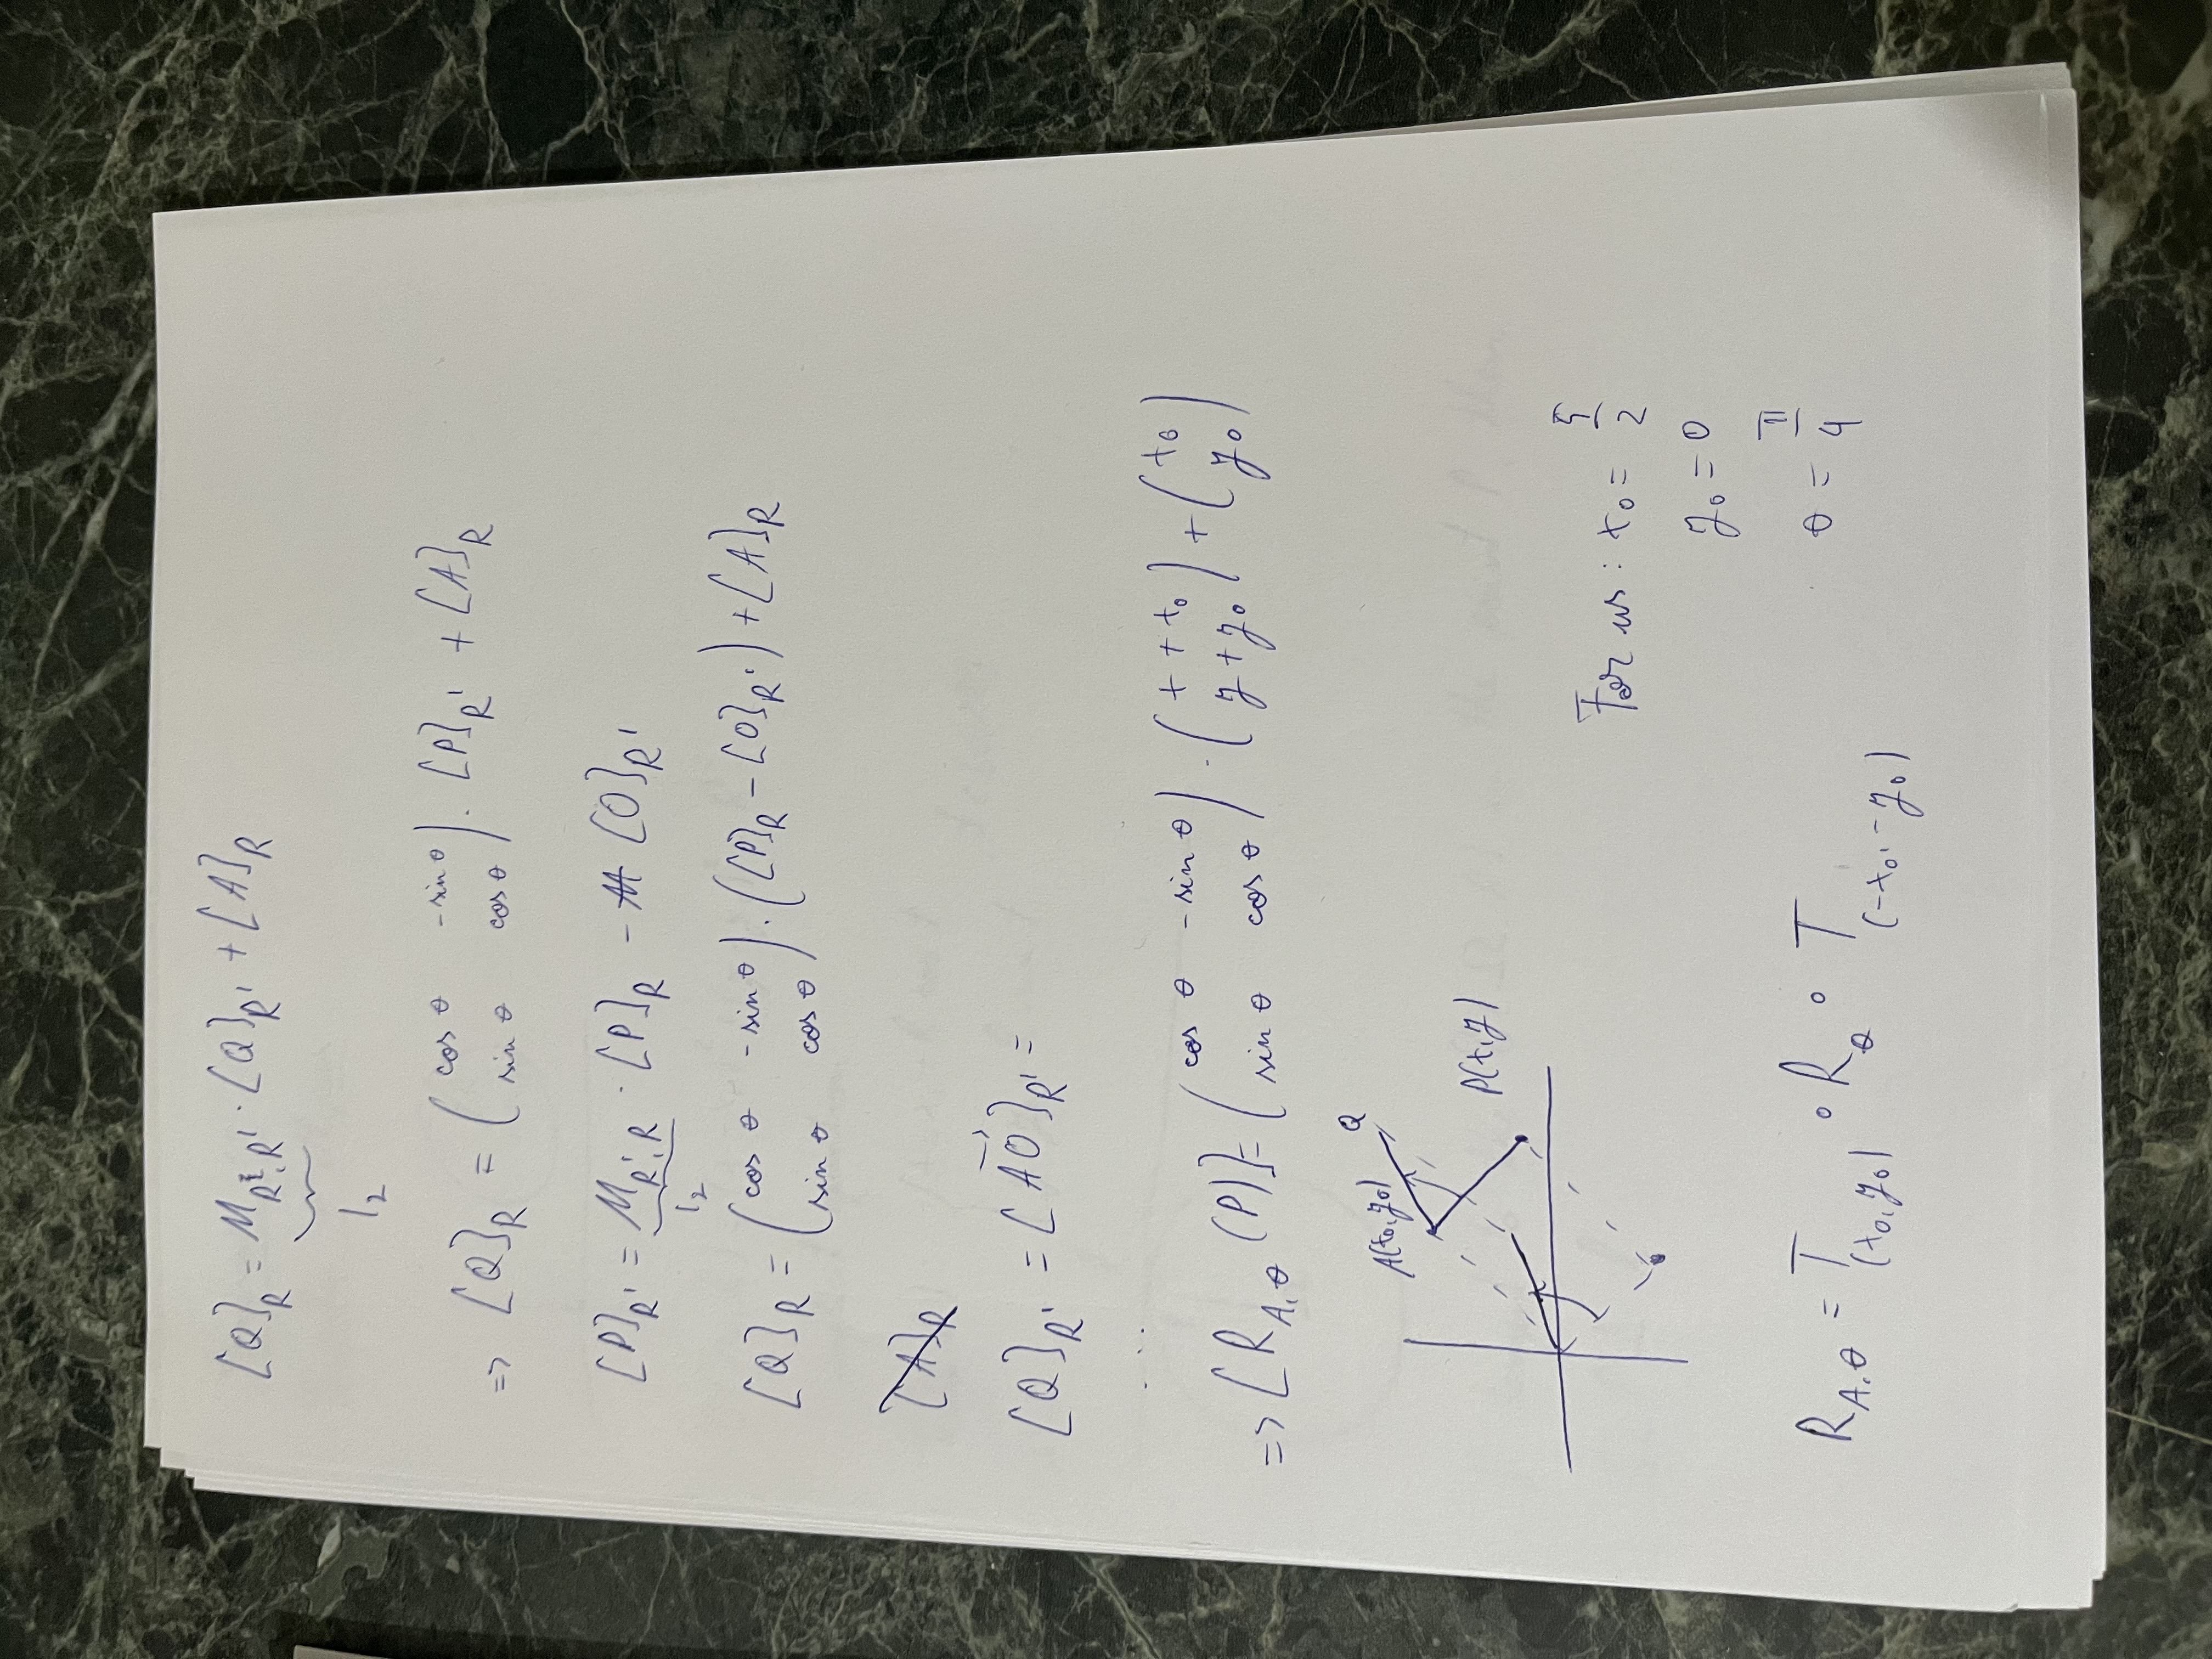 [Q]_R = M_{R,R'} · [Q]_{R'} + [A]_R
I₂
=> [Q]_R = (cos θ -sin θ
sin θ cos θ) · [P]_{R'} + [A]_R
[P]_{R'} = M_{R',R} · [P]_R - [O]_{R'}
I₂
[Q]_R = (cos θ -sin θ
sin θ cos θ) · ([P]_R - [O]_{R'}) + [A]_R
[A]_R
[Q]_{R'} = [AO→]_{R'} =
...
=> [R_{A,θ}(P)] = (cos θ -sin θ
sin θ cos θ) · (x + x₀
y + y₀) + (x₀
y₀)
A(x₀,y₀) Q
P(x,y)
For us: x₀ = 5/2
y₀ = 0
θ = π/4
R_{A,θ} = T_{(x₀,y₀)} ∘ R_θ ∘ T_{(-x₀,-y₀)}